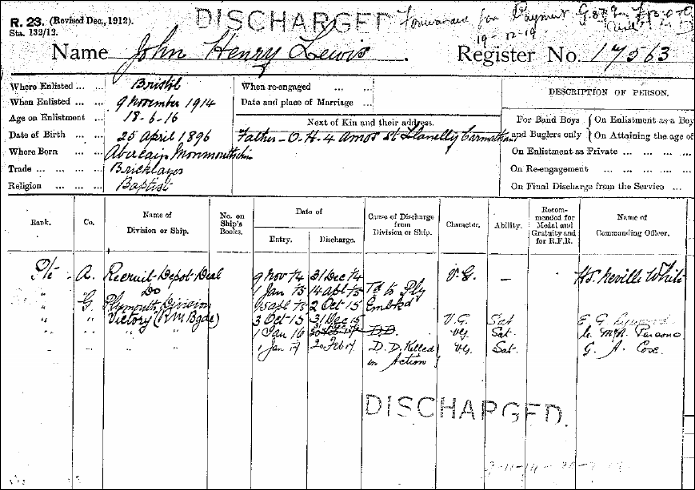 R. 23. (Revised Dec., 1912).
Sta. 132/12.
DISCHARGED
Forwarded for Payment
19-12-19
Name John Henry Lewis. Register No. 17563
Where Enlisted ... Bristol
When Enlisted ... 9 November 1914
Age on Enlistment ... 18-6-16
Date of Birth ... 25 April 1896
Where Born ... Monmouthshire
Trade ... Bricklayer
Religion ... Baptist
When re-engaged ...
Date and place of Marriage ...
Next of Kin and their address.
Father - O.H. 4 Amos St Llanelly Carmarthen
DESCRIPTION OF PERSON.
For Band Boys and Buglers only
On Enlistment as a Boy
On Attaining the age of
On Enlistment as Private ...
On Re-engagement ...
On Final Discharge from the Service ...
Rank. Co. Name of Division or Ship. No. on Ship's Books. Date of Entry. Discharge. Cause of Discharge from Division or Ship. Character. Ability. Recommended for Medal and Gratuity and for R.F.R. Name of Commanding Officer.
Pte A. Recruit Depot Deal 9 Nov 14 31 Dec 14 V.G. - Neville White
" " Do 1 Jan 15 14 Apl 15 Td to Ply
" G Plymouth Division 15 Apl 15 2 Oct 15 Embkd
" " Victory (R.M. Bgde) 3 Oct 15 31 Dec 15 V.G. Sat E G
" " " 1 Jan 16 VG Sat. Parsons
" " " 1 Jan 17 Feb 17 D.D. Killed in Action VG Sat. G. A. Cox.
DISCHARGED.